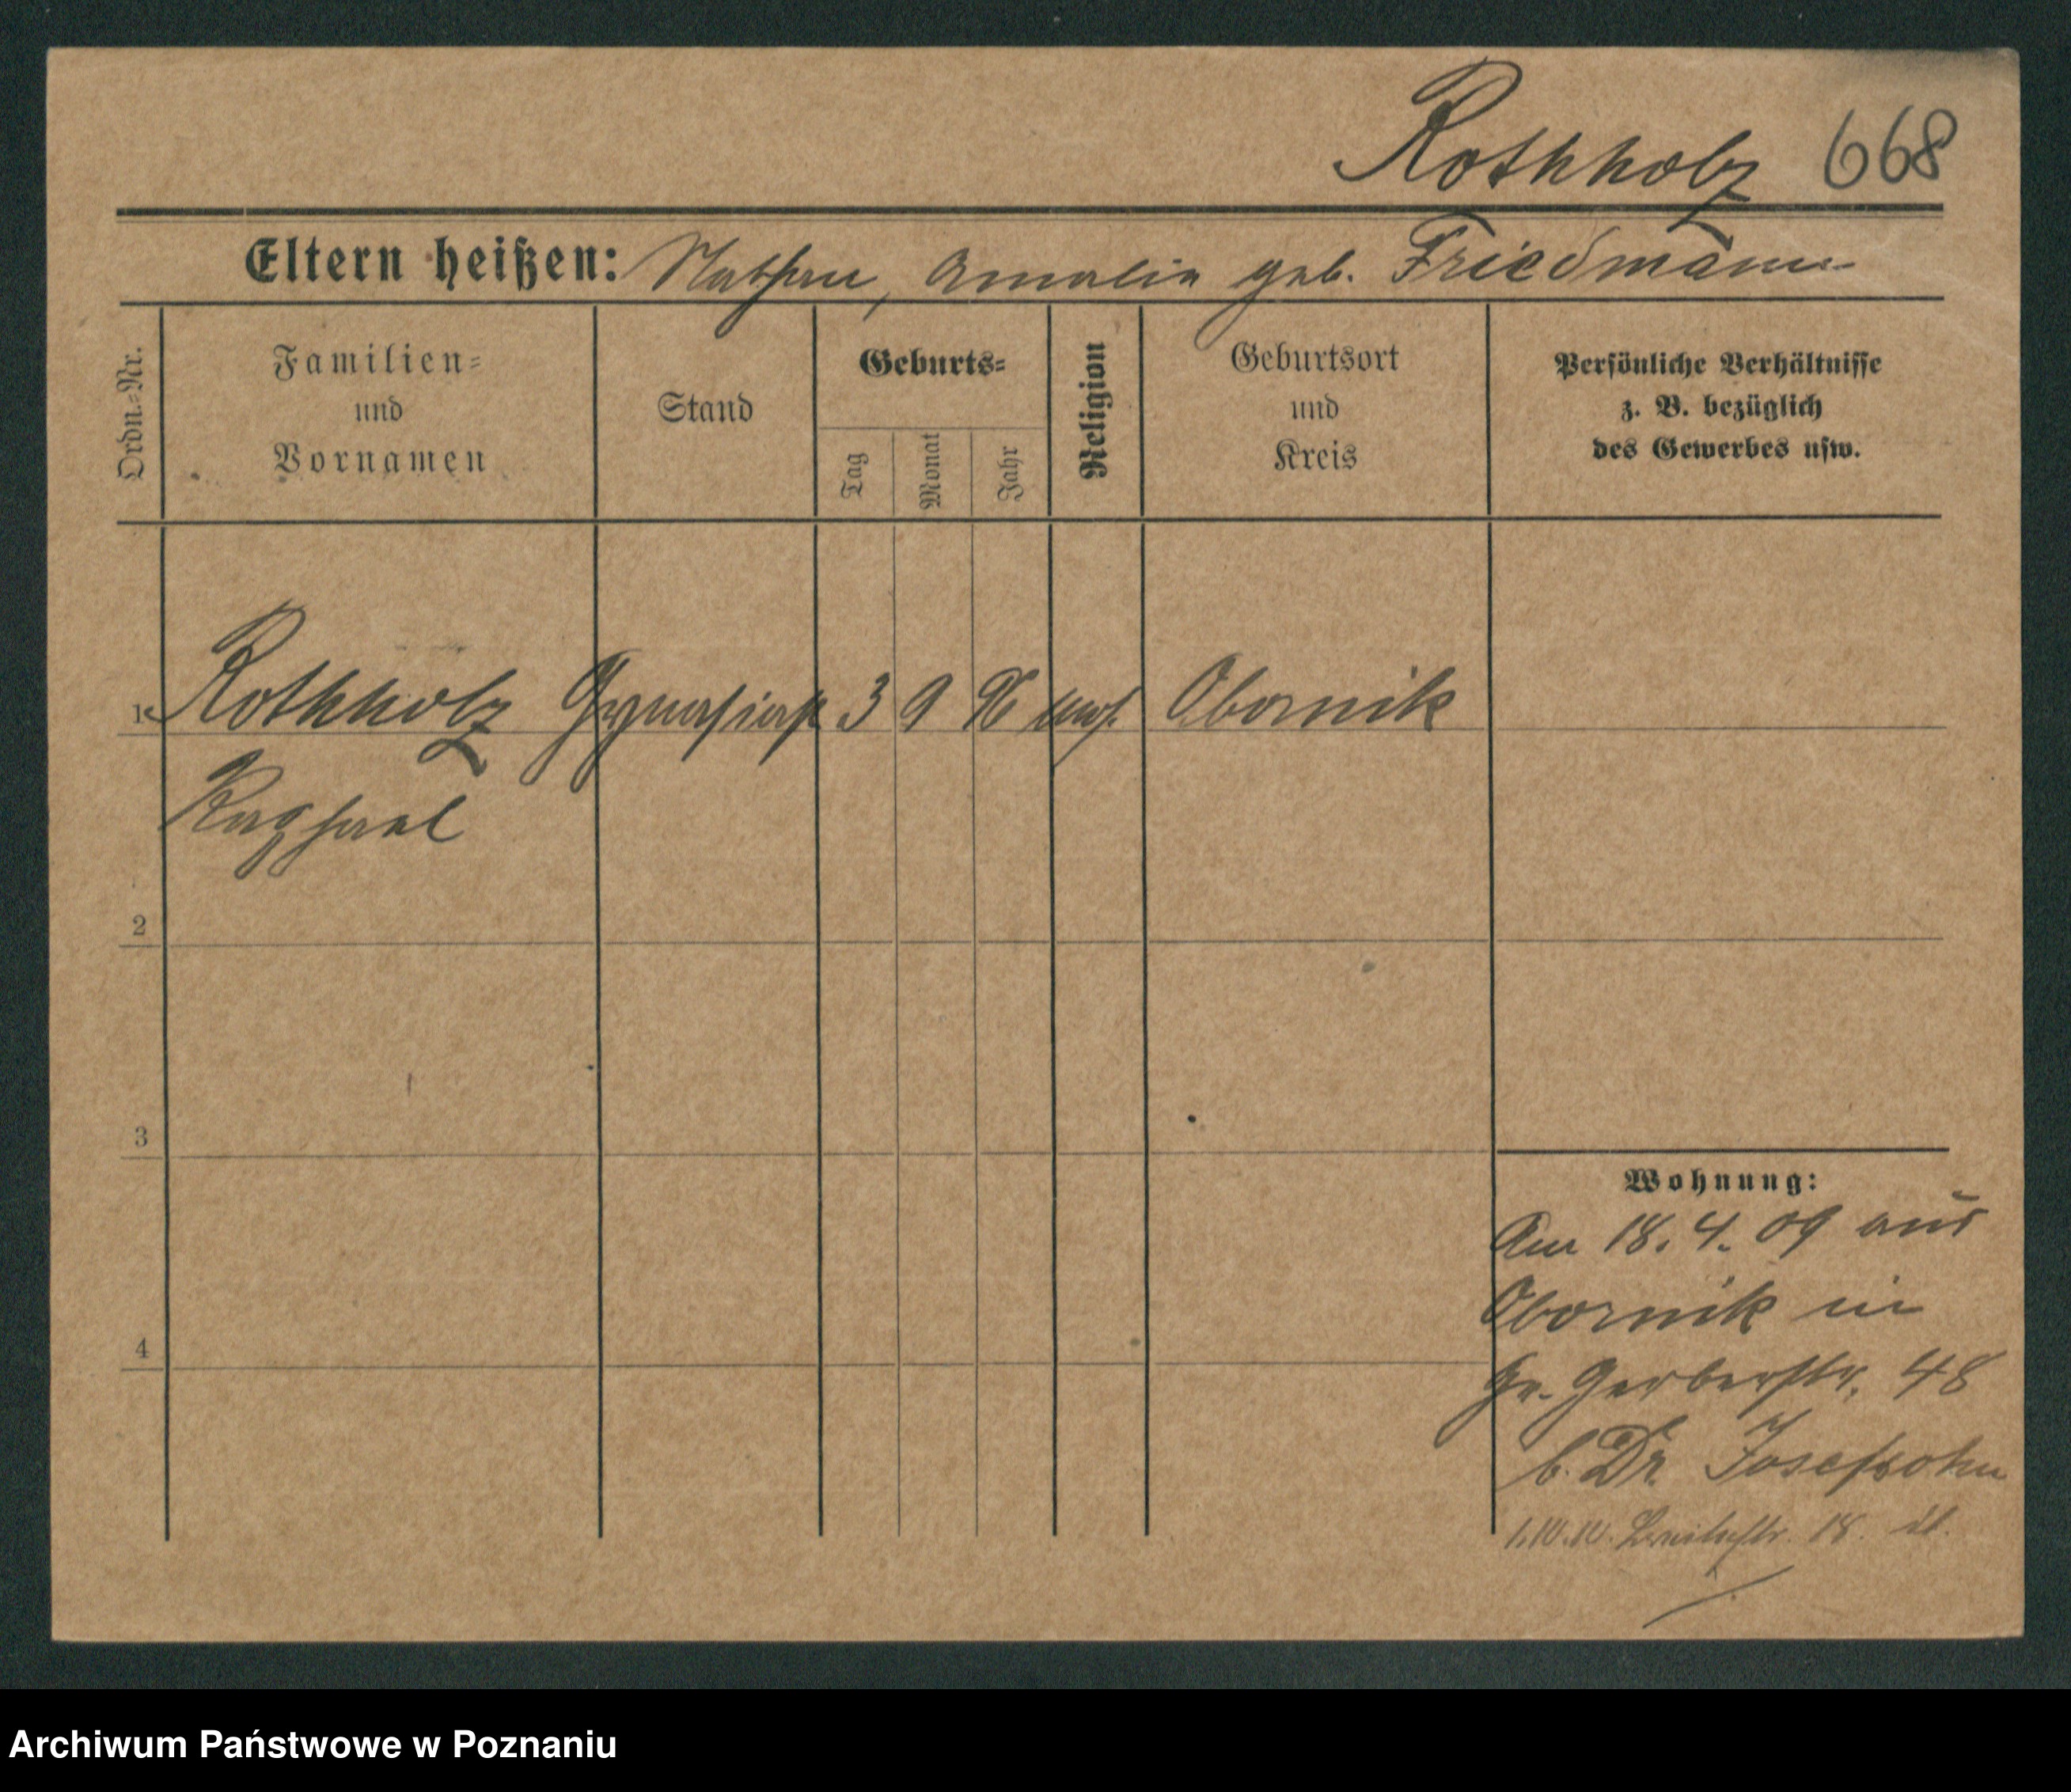 Rothholz 668
Eltern heißen: Nathan, Amalie geb. Friedmann
Ordn.-Nr.
Familien-
und
Vornamen
Stand
Geburts-
Tag
Monat
Jahr
Religion
Geburtsort
und
Kreis
Persönliche Verhältnisse
z. B. bezüglich
des Gewerbes usw.
1 Rothholz Gymnasiast 3 9 96 mos. Obornik
Raphael
2
3
4
Wohnung:
Am 18.4.09 aus
Obornik in
Gr. Gerberstr. 48
b. Dr. Josefsohn
1.10.10. Breitestr. 18.
Archiwum Państwowe w Poznaniu